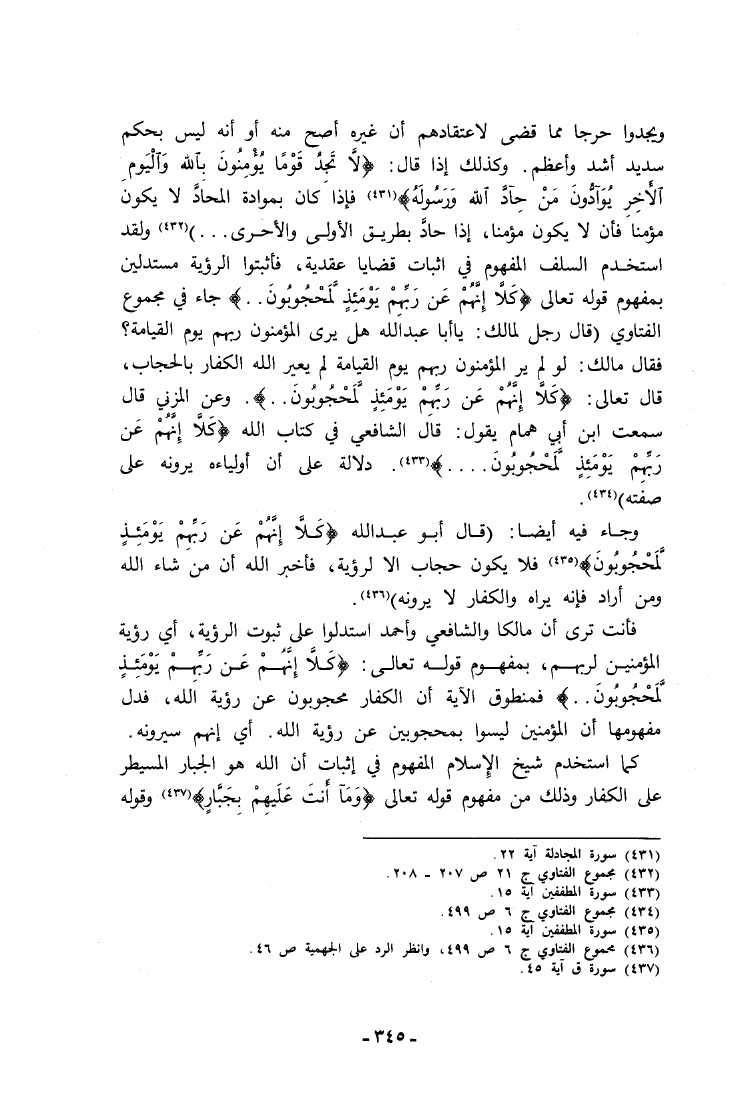 ويجدوا حرجا مما قضى لاعتقادهم أن غيره أصح منه أو أنه ليس بحكم
سديد أشد وأعظم. وكذلك إذا قال: ﴿لَّا تَجِدُ قَوْمًا يُؤْمِنُونَ بِٱللَّهِ وَٱلْيَوْمِ
ٱلْآخِرِ يُوَآدُّونَ مَنْ حَآدَّ ٱللَّهَ وَرَسُولَهُ﴾(٤٣١) فإذا كان بموادة المحادّ لا يكون
مؤمنا فأن لا يكون مؤمنا، إذا حادّ بطريق الأولى والأحرى...)(٤٣٢) ولقد
استخدم السلف المفهوم في اثبات قضايا عقدية، فأثبتوا الرؤية مستدلين
بمفهوم قوله تعالى ﴿كَلَّا إِنَّهُمْ عَن رَبِّهِمْ يَوْمَئِذٍ لَّمَحْجُوبُونَ..﴾ جاء في مجموع
الفتاوي (قال رجل لمالك: ياأبا عبدالله هل يرى المؤمنون ربهم يوم القيامة؟
فقال مالك: لو لم ير المؤمنون ربهم يوم القيامة لم يعير الله الكفار بالحجاب،
قال تعالى: ﴿كَلَّا إِنَّهُمْ عَن رَبِّهِمْ يَوْمَئِذٍ لَّمَحْجُوبُونَ..﴾. وعن المزني قال
سمعت ابن أبي همام يقول: قال الشافعي في كتاب الله ﴿كَلَّا إِنَّهُمْ عَن
رَبِّهِمْ يَوْمَئِذٍ لَّمَحْجُوبُونَ....﴾(٤٣٣). دلالة على أن أولياءه يرونه على
صفته)(٤٣٤).
وجاء فيه أيضا: (قال أبو عبدالله ﴿كَلَّا إِنَّهُمْ عَن رَبِّهِمْ يَوْمَئِذٍ
لَّمَحْجُوبُونَ﴾(٤٣٥) فلا يكون حجاب الا لرؤية، فأخبر الله أن من شاء الله
ومن أراد فإنه يراه والكفار لا يرونه)(٤٣٦).
فأنت ترى أن مالكا والشافعي وأحمد استدلوا على ثبوت الرؤية، أي رؤية
المؤمنين لربهم، بمفهوم قوله تعالى: ﴿كَلَّا إِنَّهُمْ عَن رَبِّهِمْ يَوْمَئِذٍ
لَّمَحْجُوبُونَ..﴾ فمنطوق الآية أن الكفار محجوبون عن رؤية الله، فدل
مفهومها أن المؤمنين ليسوا بمحجوبين عن رؤية الله. أي إنهم سيرونه.
كما استخدم شيخ الإسلام المفهوم في إثبات أن الله هو الجبار المسيطر
على الكفار وذلك من مفهوم قوله تعالى ﴿وَمَآ أَنتَ عَلَيهِمْ بِجَبَّارٍ﴾(٤٣٧) وقوله
(٤٣١) سورة المجادلة آية ٢٢.
(٤٣٢) مجموع الفتاوي ج ٢١ ص ٢٠٧ - ٢٠٨.
(٤٣٣) سورة المطففين آية ١٥.
(٤٣٤) مجموع الفتاوي ج ٦ ص ٤٩٩.
(٤٣٥) سورة المطففين آية ١٥.
(٤٣٦) مجموع الفتاوي ج ٦ ص ٤٩٩، وانظر الرد على الجهمية ص ٤٦.
(٤٣٧) سورة ق آية ٤٥.
- ٣٤٥ -